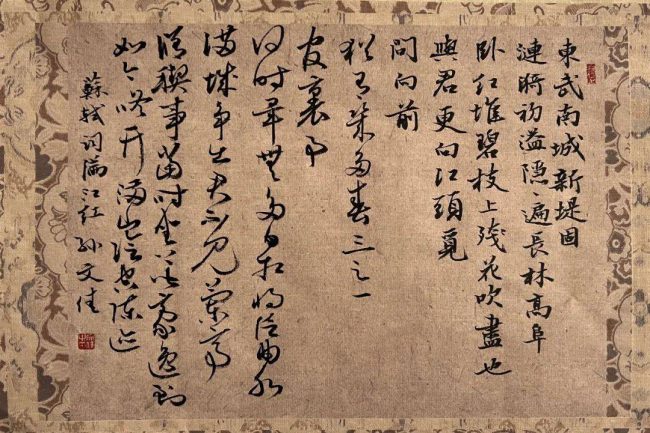 東武南城新堤固
漣漪初溢隱隱遍長林高阜
卧紅堆碧枝上殘花吹盡也
與君更向江頭覓
問向前
猶有幾多春三之一
官裏事
何時畢無多日相將泛曲水
滿城爭出君不見蘭亭
脩禊事當時坐上皆豪逸到
如今滿山陰空陳迹
蘇軾詞滿江紅 孫文佳